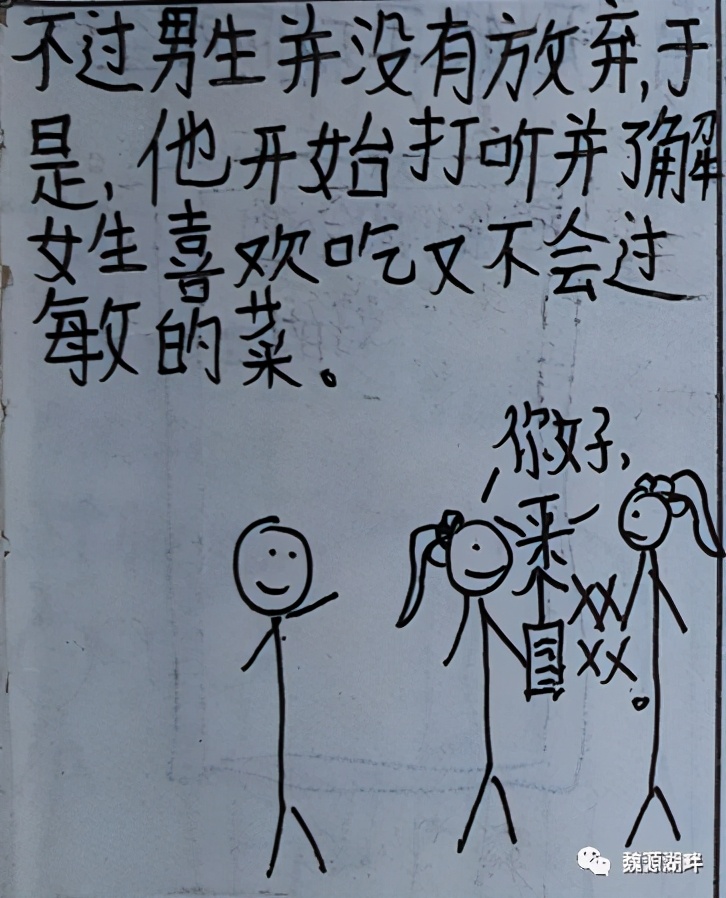 不过男生并没有放弃,于
是,他开始打听并了解
女生喜欢吃又不会过
每攵的菜。
你好,
采
XX
XX。
魏源湖畔